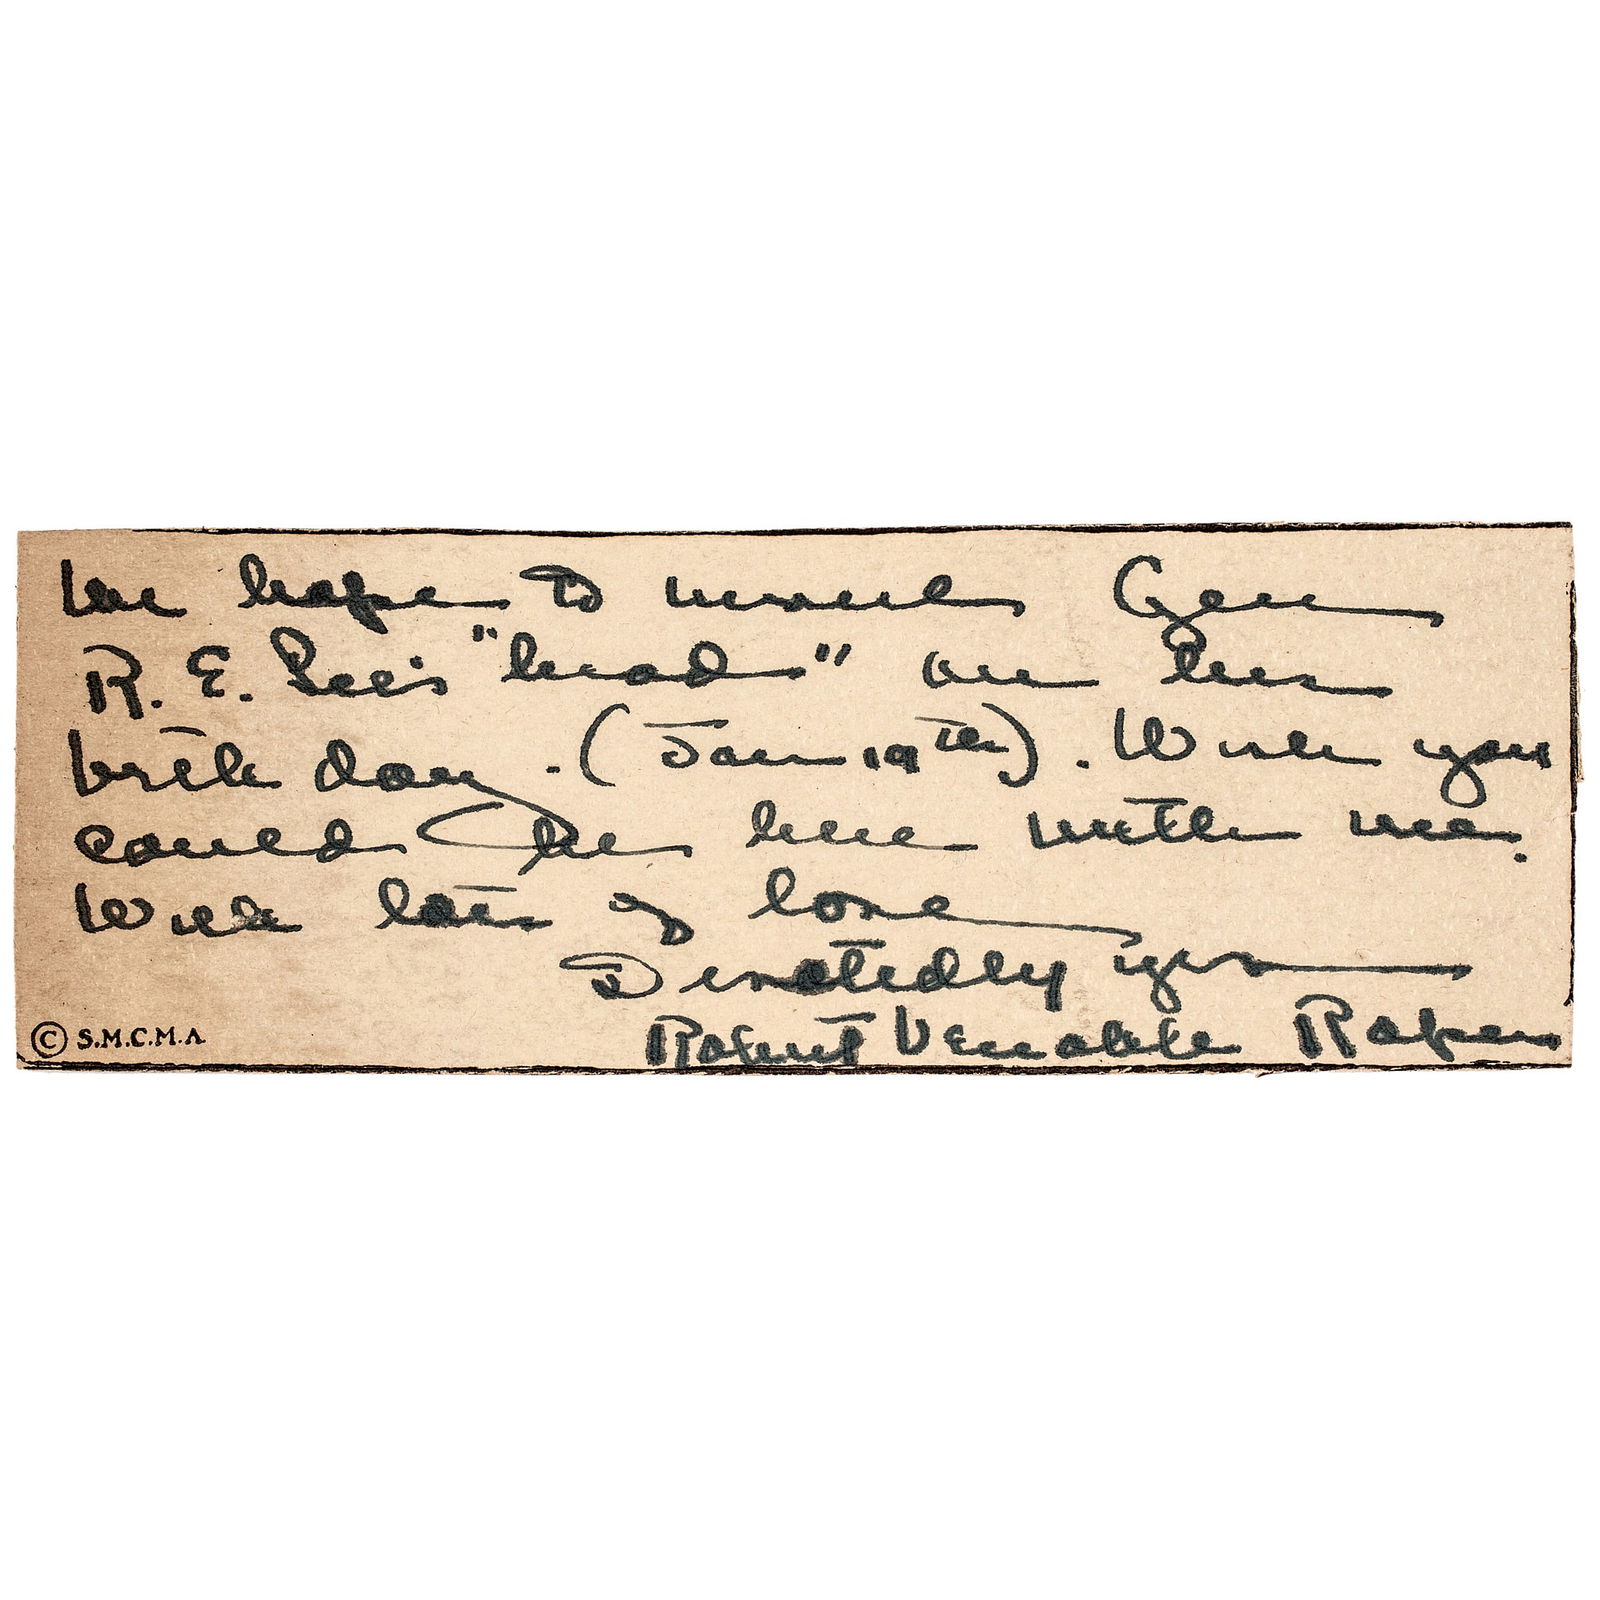 We hope to unveil Gen
R. E. Lee's "head" on his
birth day. (Jan 19th). Wish you
could be here with me.
With lots of love
Devotedly yrs
Robert Venable Roper
© S.M.C.M.A.